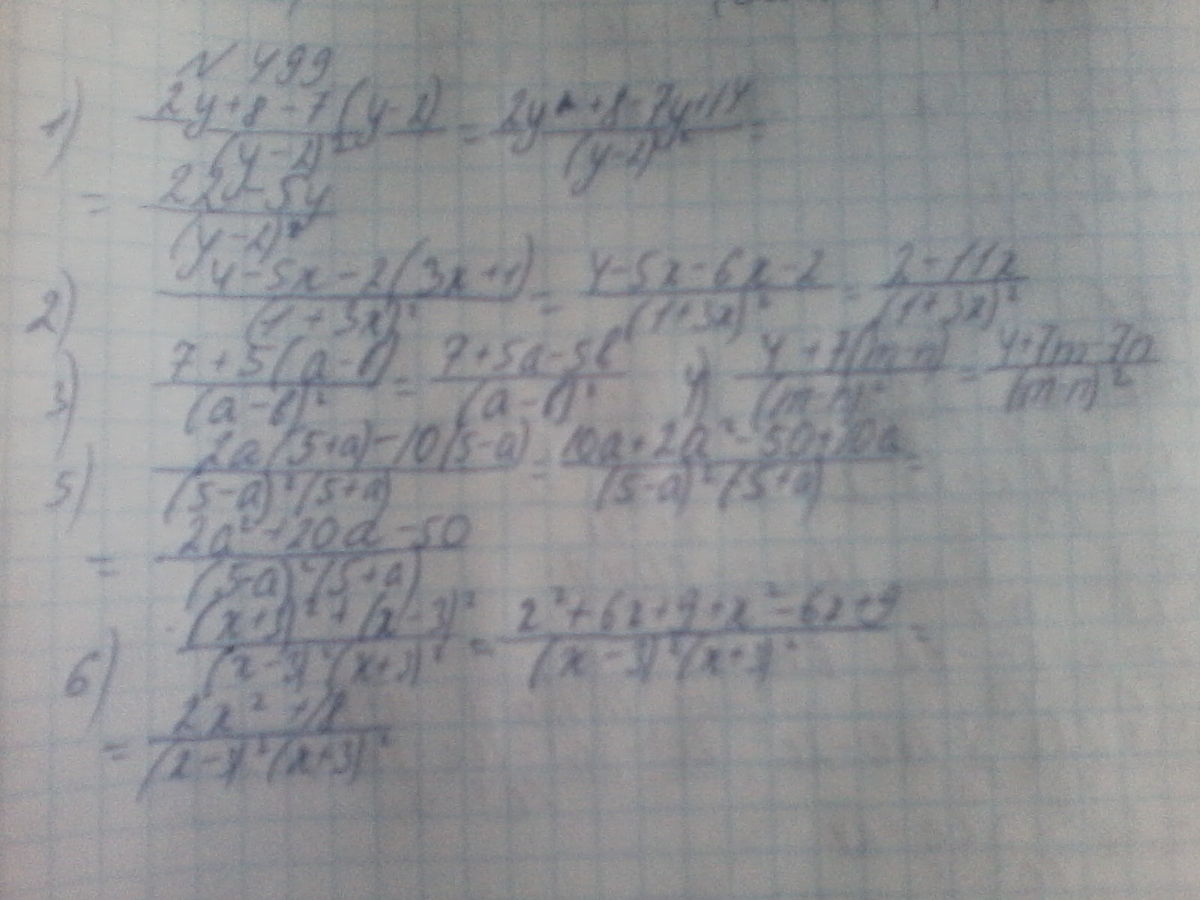 N 499
1) (2y+8-7(y-2))/(y-2)² = (2y+8-7y+14)/(y-2)² =
= (22-5y)/(y-2)²
2) (4-5x-2(3x+1))/(1+3x)² = (4-5x-6x-2)/(1+3x)² = (2-11x)/(1+3x)²
3) (7+5(a-b))/(a-b)² = (7+5a-5b)/(a-b)² 4) (4+7(m-n))/(m-n)² = (4+7m-7n)/(m-n)²
5) (2a(5+a)-10(5-a))/((5-a)²(5+a)) = (10a+2a²-50+10a)/((5-a)²(5+a)) =
= (2a²+20a-50)/((5-a)²(5+a))
6) ((x+3)²+(x-3)²)/((x-3)²(x+3)²) = (x²+6x+9+x²-6x+9)/((x-3)²(x+3)²) =
= (2x²+18)/((x-3)²(x+3)²)